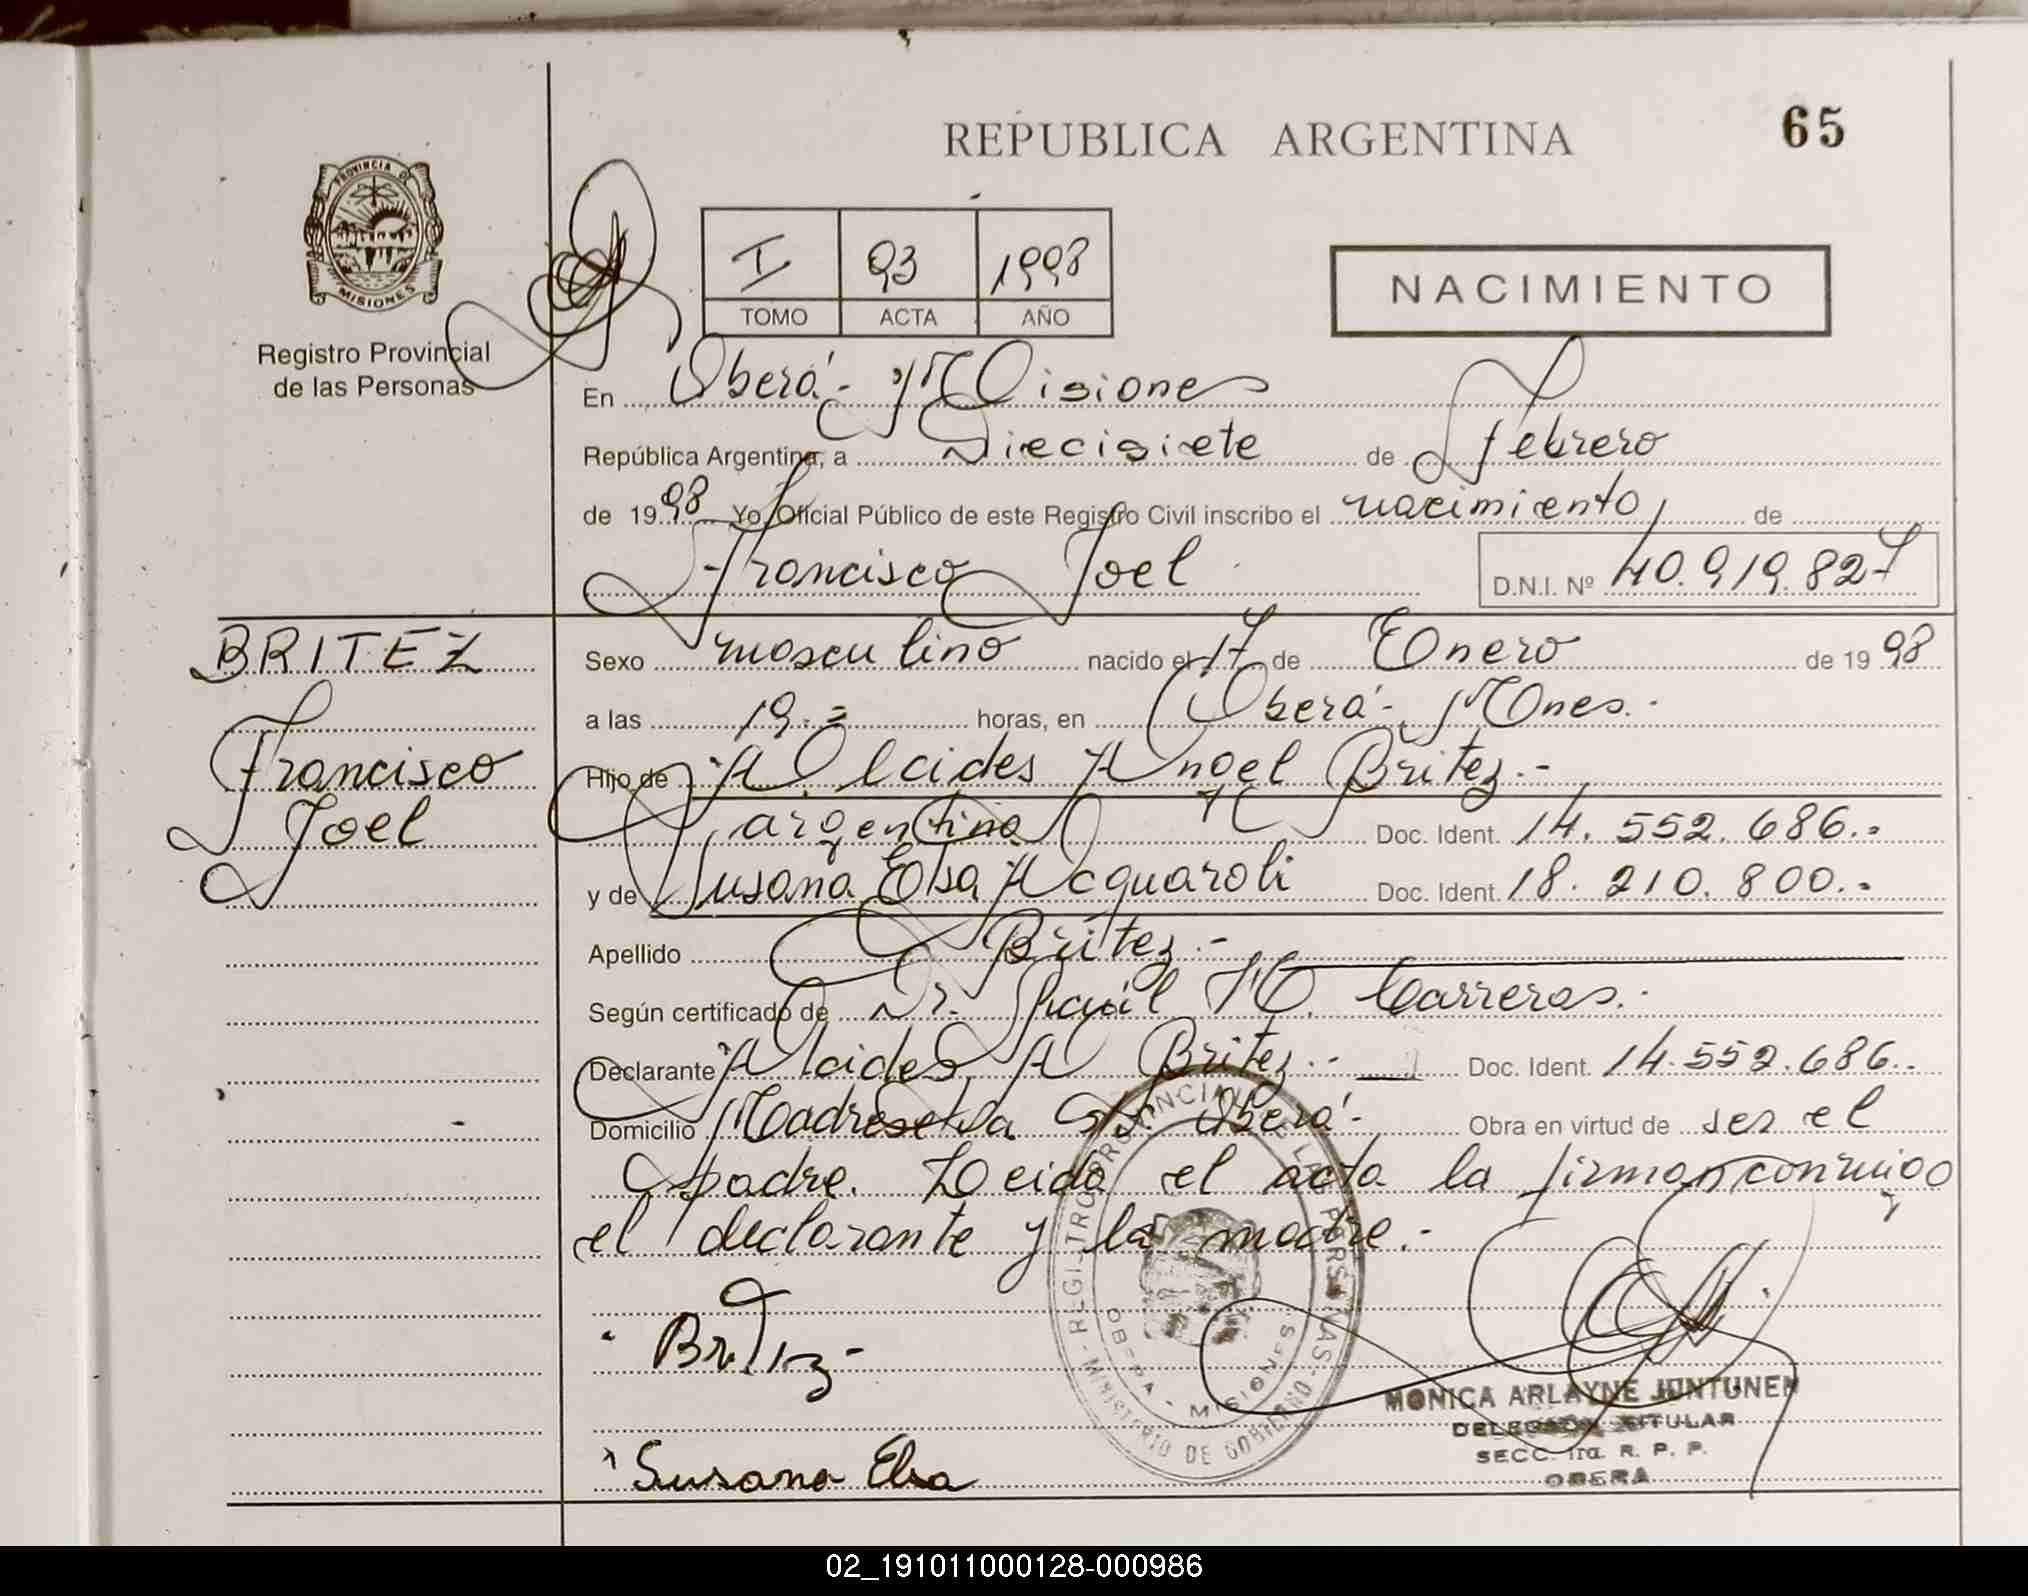 REPUBLICA ARGENTINA
65
PROVINCIA D
MISIONES
Registro Provincial
de las Personas
I 93 1998
TOMO ACTA AÑO
NACIMIENTO
En Oberá - Misiones
República Argentina, a Diecisiete de febrero
de 1998 Yo, Oficial Público de este Registro Civil inscribo el nacimiento de
Francisco Joel D.N.I. Nº 40.919.827
BRITEZ
Francisco
Joel
Sexo masculino nacido el 17 de Enero de 1998
a las 19.= horas, en Oberá - Mnes.-
Hijo de Alcides Angel Britez.-
argentino Doc. Ident. 14.552.686.-
y de Susana Elsa Acquaroli Doc. Ident. 18.210.800.-
Apellido Britez.-
Según certificado de Dr. Raúl H. Carreras.-
Declarante Alcides A Britez.- Doc. Ident. 14.552.686.-
Domicilio Madreselva Oberá- Obra en virtud de ser el
padre. Leida el acta la firman conmigo
el declarante y la madre.-
Britez-
Susana Elsa
REGISTRO PROVINCIAL DE LAS PERSONAS - MINISTERIO DE GOBIERNO -
OBERA - MISIONES
MONICA ARLAYNE JUNTUNEN
DELEGADA TITULAR
SECC. 1ra. R. P. P.
OBERA
02_191011000128-000986